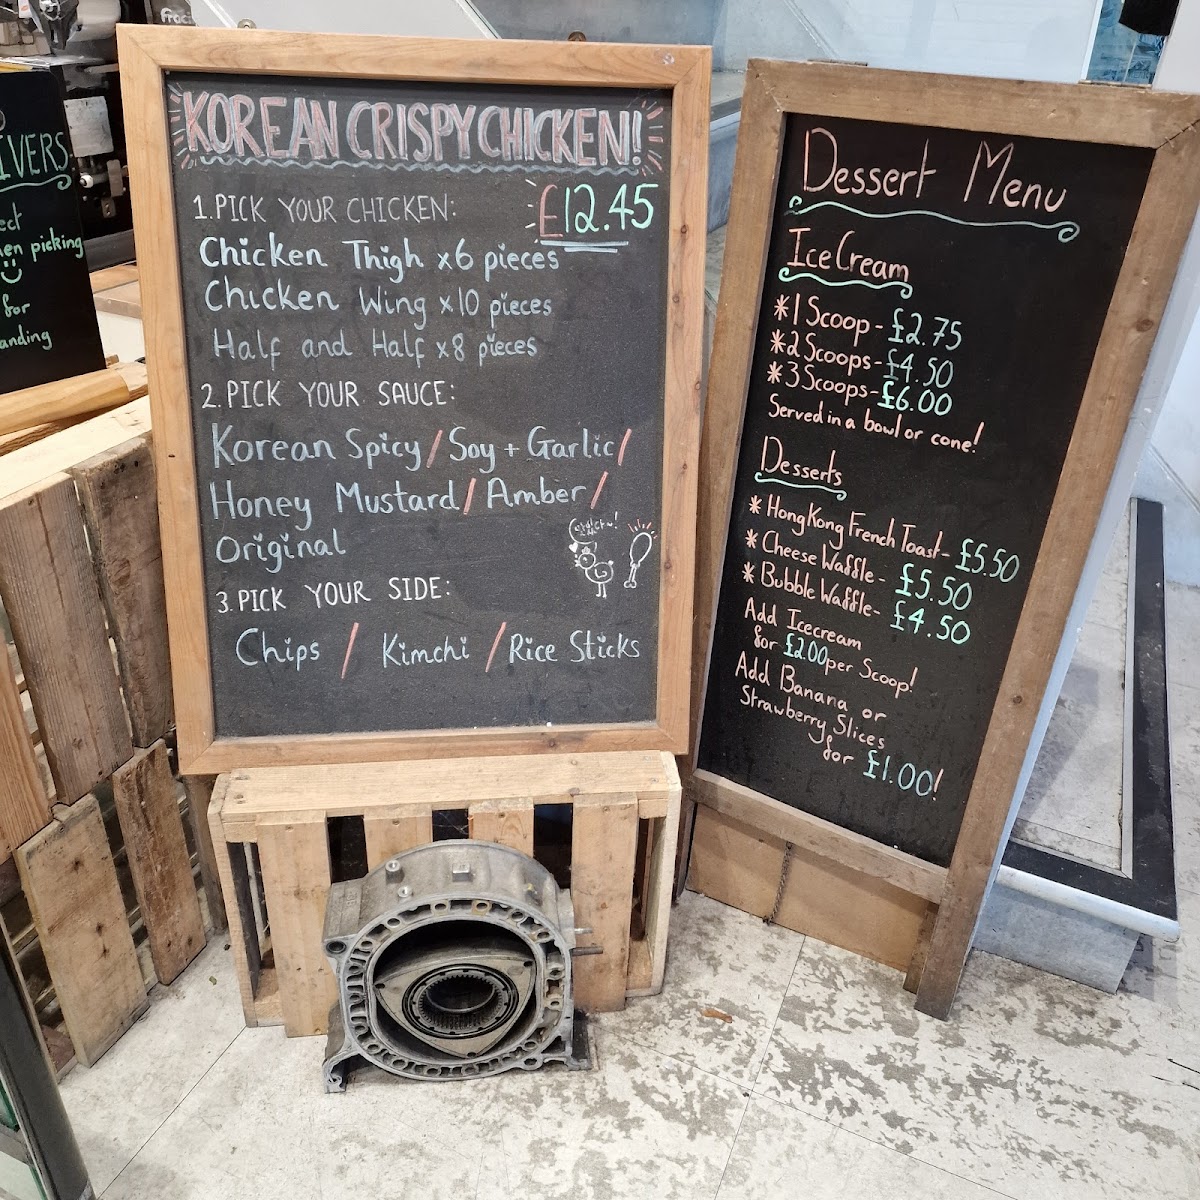 IVERS
ect
en picking
for
anding
KOREAN CRISPY CHICKEN!
£12.45
1. PICK YOUR CHICKEN:
Chicken Thigh x6 pieces
Chicken Wing x10 pieces
Half and Half x8 pieces
2. PICK YOUR SAUCE:
Korean Spicy / Soy + Garlic /
Honey Mustard / Amber /
Original
3. PICK YOUR SIDE:
Chips / Kimchi / Rice Sticks
Dessert Menu
Ice Cream
*1 Scoop - £2.75
*2 Scoops - £4.50
*3 Scoops - £6.00
Served in a bowl or cone!
Desserts
* Hong Kong French Toast - £5.50
* Cheese Waffle - £5.50
* Bubble Waffle - £4.50
Add Icecream
for £2.00 per Scoop!
Add Banana or
Strawberry Slices
for £1.00!